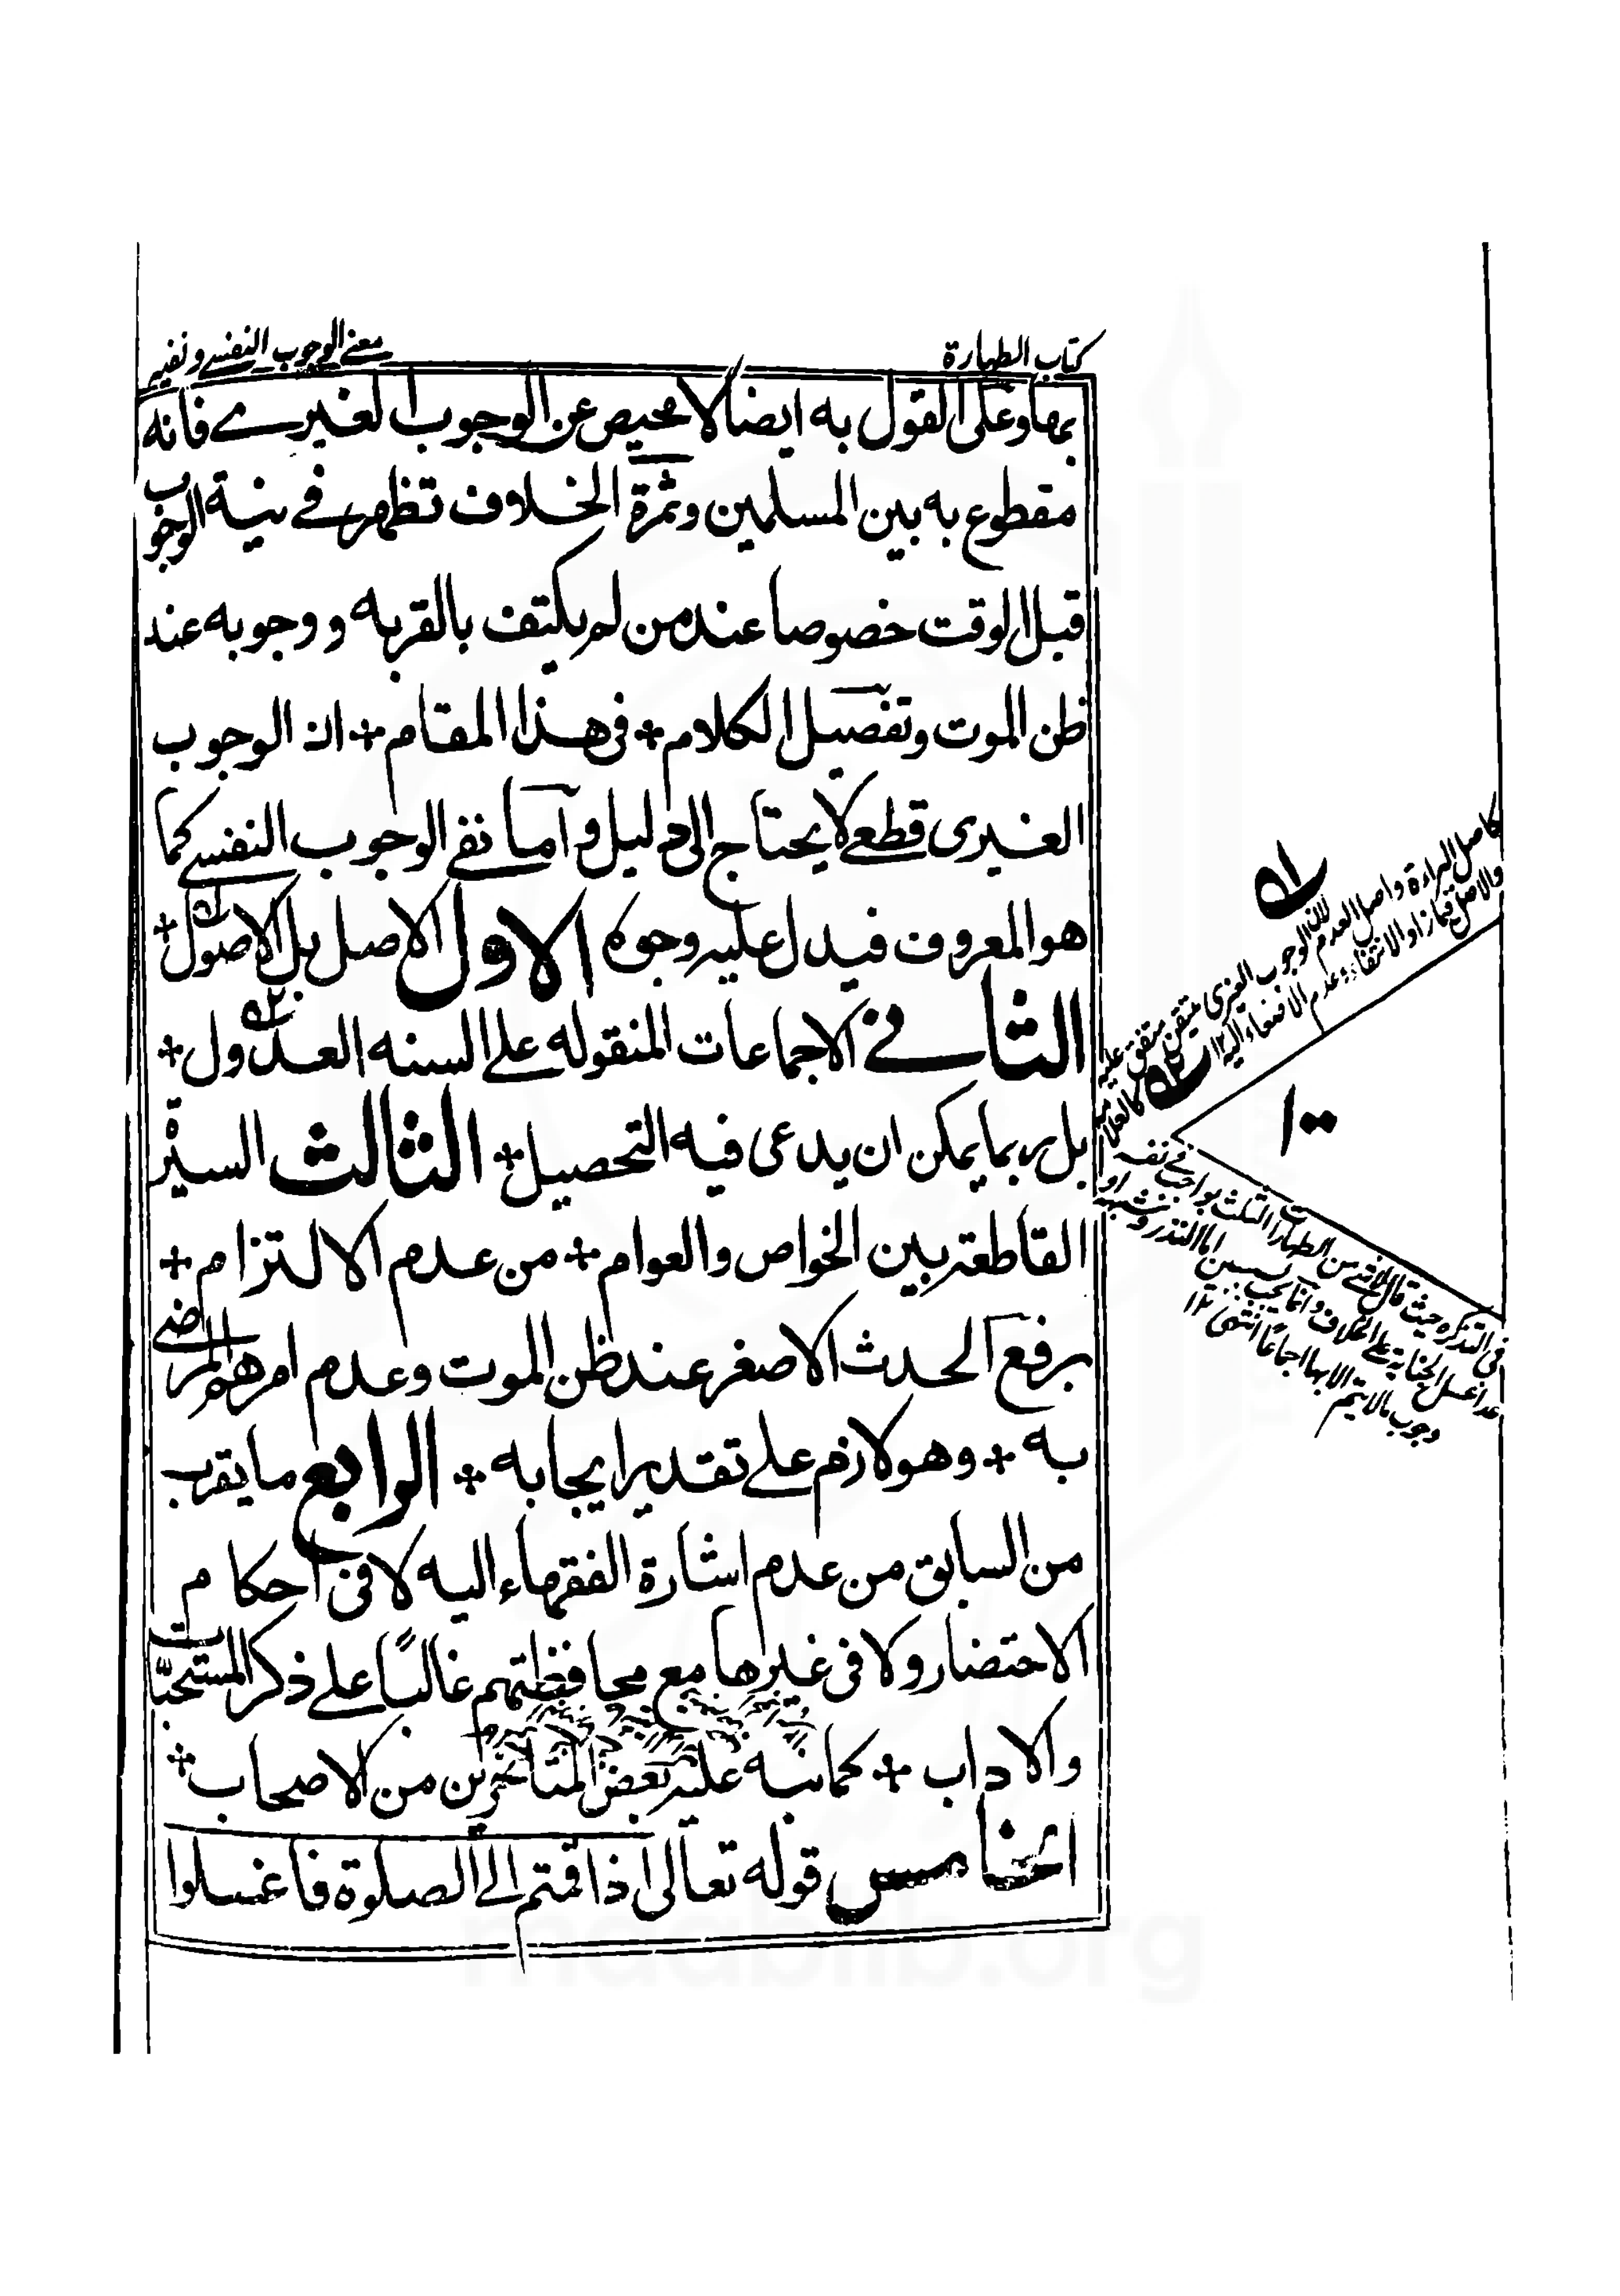 كتاب الطهارة
معنے الوجوب النفسے ونفيه
بها وعلى القول به ايضا لا محيص عن الوجوب الغيرے فانه
مقطوع به بين المسلمين وثمرة الخلاف تظهر فے نية الوجوب
قبل الوقت خصوصا عند من لم يكتف بالقربه و وجوبه عند
ظن الموت وتفصيل الكلام + فى هذا المقام + ان الوجوب
الغيرى قطعے لا يحتاج الى دليل واما نفے الوجوب النفسے كما
هو المعروف فيدل عليه وجوه الاول الاصل بل الاصول +
الثانے الاجماعات المنقوله علے السنه العدول +
بل ربما يمكن ان يدعى فيه التحصيل + الثالث السيرة
القاطعة بين الخواص والعوام + من عدم الالتزام +
برفع الحدث الاصغر عند ظن الموت وعدم امرهم المرضے
به + وهو لازم علے تقدير ايجابه + الرابع ما يقرب
من السابق من عدم اشارة الفقهاء اليه لا فى احكام
الاحتضار ولا فى غيرها مع محافظتهم غالبًا علے ذكر المستحبات
والاداب + كما نبه عليه بعض المتأخرين من الاصحاب +
الخامس قوله تعالى اذا قمتم الے الصلوة فاغسلوا
كاصل البراءة واصل العدم
لان الوجوب الغيرى متيقن متفق عليه
١٠٠
فى التذكره حيث قال
من الطهارات الثلث بواجب فى نفسه
عدا غسل الجنابة علے الخلاف وانما يجب بسببين اما النذر وشبهه او
وجوب مالا يتم الا بها اجماعًا انتهى ١٢